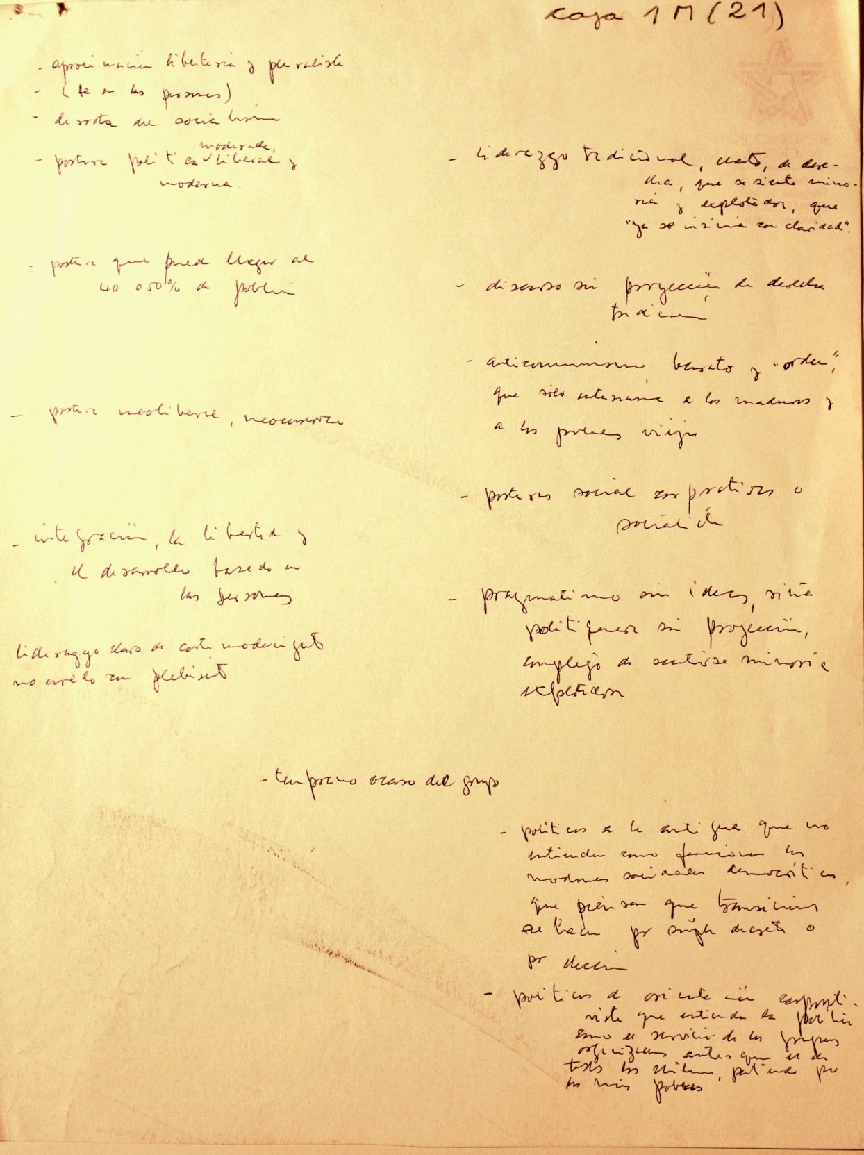 caja 1 M (21)
- aproximación libertaria y pluralista
- (fe en las personas)
- derrota del socialismo
moderada,
- postura política liberal y
moderna.
- postura que puede llegar al
40 o 50% de población
- postura neoliberal,
- integración, la libertad y
el desarrollo basado en
las personas
liderazgo claro de corte
no con plebiscito
- liderazgo tradicional, de dere-
cha, que se siente mino-
ría y explotador, que
"ya se con claridad".
- discurso sin proyección de derecha
tradicional
- anticomunismo barato y "orden",
que sólo interesaría a los maduros y
a los viejos
- posturas social corporativas o
- pragmatismo sin ideas,
politiquera sin proyección,
complejo de sentirse minoría
explotadora
- temprano ocaso del grupo
- políticos a la antigua que no
entienden como funcionan las
modernas sociedades democráticas,
que piensan que transiciones
se hacen por simple decreto o
por
- políticos de orientación corporati-
vista que entienden la política
como el servicio de los grupos
organizados antes que el de
todos los chilenos, partiendo por
los más pobres